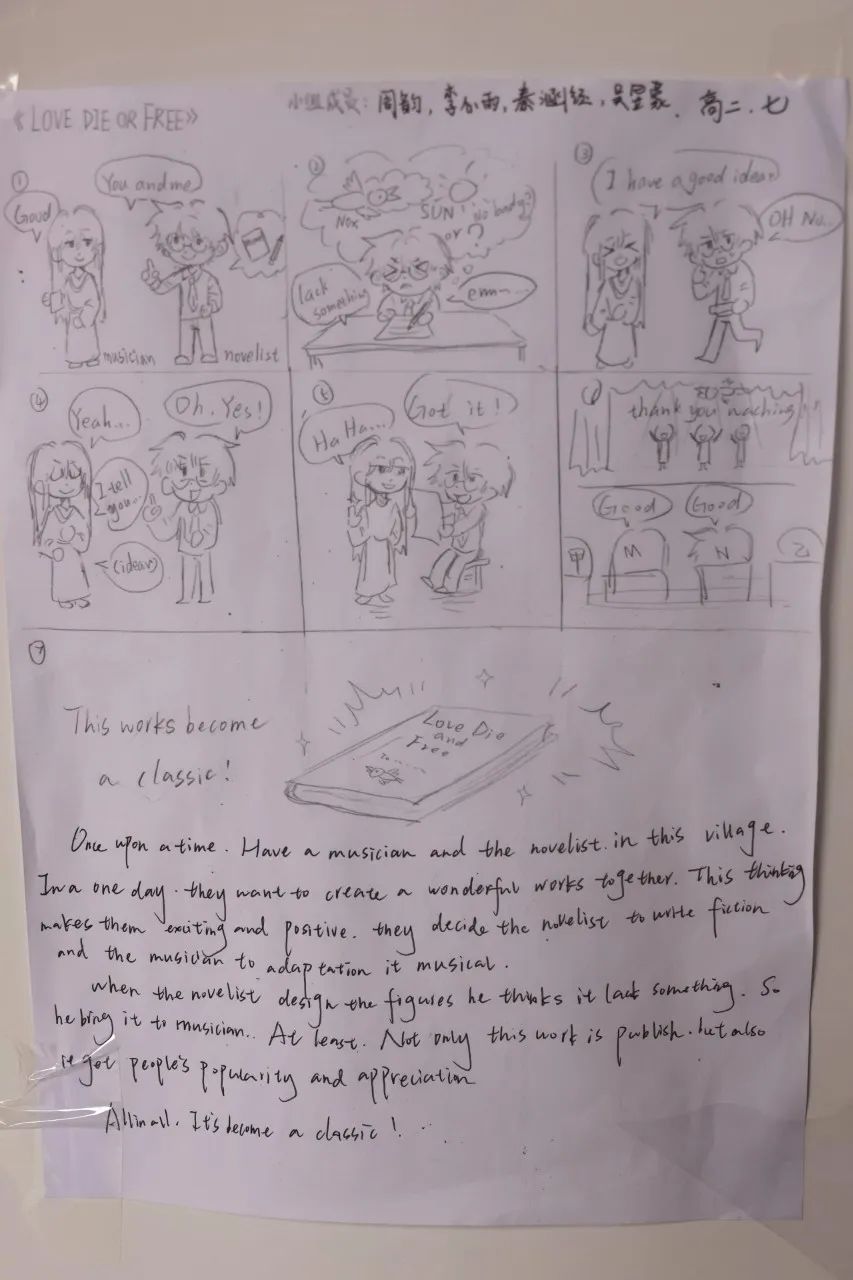 《LOVE DIE OR FREE》
小组成员：周韵，李尒雨，秦，吴昱豪．高二．七
①
Good
You and me
musician
novelist
②
Nox
SUN
No body?
or ?
lack
something
emm...
③
I have a good idear
OH No...
④
Yeah...
Oh, Yes!
I tell
you...
(idear)
Ha Ha...
Got it!
thank you waching
Good
Good
甲
M
N
乙
⑦
This works become
a classic!
Love Die
and
Free
Once upon a time. Have a musician and the novelist in this village.
In a one day. they want to create a wonderful works together. This thinking
makes them exciting and positive. they decide the novelist to write fiction
and the musician to adaptation it musical.
when the novelist design the figures he thinks it lack something. So
he bring it to musician.. At least. Not only this work is publish. but also
get people's popularity and appreciation
All in all. It's become a classic!..